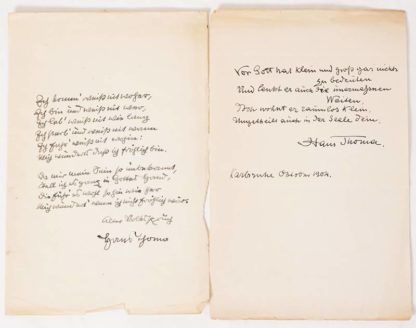 Ich komm' weiß nit woher,
Ich bin und weiß nit wer,
Ich leb' weiß nit wie lang
Ich sterb' und weiß nit wann
Ich fahr' weiß nit wohin:
Mich wunderts daß ich fröhlich bin.
Da mir mein Sein so unbekannt,
ich es ganz in Gottes Hand,
Die führt es wohl so hin wie her
Mich wundert's wenn ich nicht fröhlich
Hans Thoma
Vor Gott hat Klein und Groß gar nichts
zu bedeuten
Und lenkt er auch die
Weiten,
Doch wohnt er klein,
Ungetheilt auch in der Seele dein.
Hans Thoma.
Karlsruhe Ostern 1904.